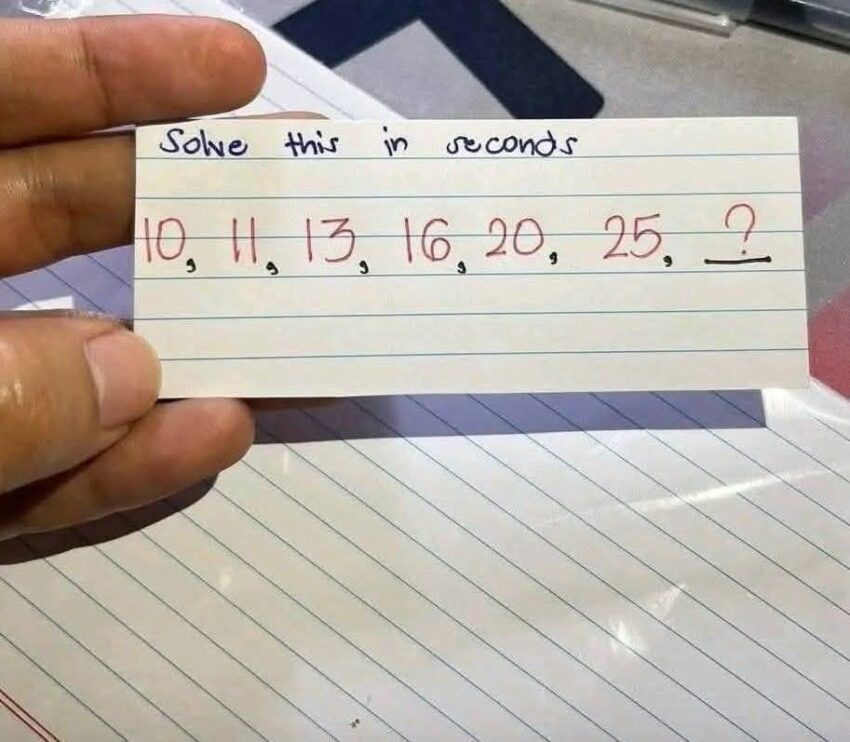 Solve this in seconds
10, 11, 13, 16, 20, 25, ?